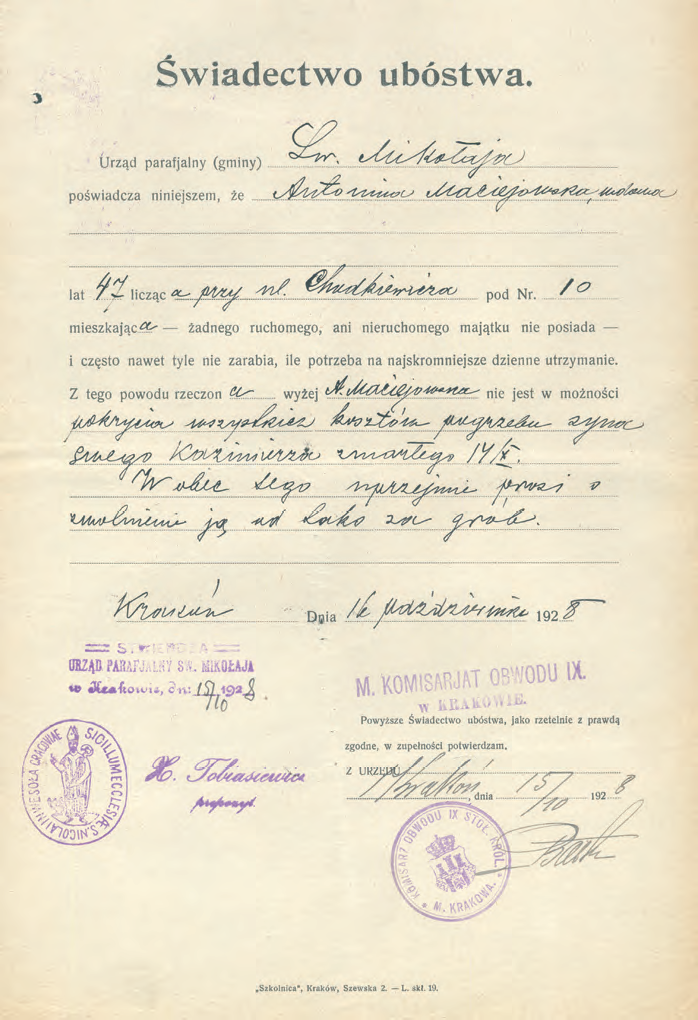 Świadectwo ubóstwa.
Urząd parafjalny (gminy) Św. Mikołaja
poświadcza niniejszem, że Antonina Maciejowska, wdowa
lat 47 licząca przy ul. Chodkiewicza pod Nr. 10
mieszkająca — żadnego ruchomego, ani nieruchomego majątku nie posiada —
i często nawet tyle nie zarabia, ile potrzeba na najskromniejsze dzienne utrzymanie.
Z tego powodu rzeczona wyżej A. Maciejowska nie jest w możności
pokrycia wszystkich kosztów pogrzebu syna
swego Kazimierza zmarłego 14/X.
W obec tego uprzejmie prosi o
zwolnienie ją od taks za grób.
Kraków Dnia 16 października 1928
STWIERDZA
URZĄD PARAFJALNY ŚW. MIKOŁAJA
w Krakowie, dn: 15/10 1928.
M. KOMISARJAT OBWODU IX.
W KRAKOWIE.
Powyższe Świadectwo ubóstwa, jako rzetelnie z prawdą
zgodne, w zupełności potwierdzam.
Z URZĘDU
Kraków, dnia 15/10 1928
SIGILLUM ECCLESIÆ S. NICOLAI IN WESOŁA CRACOVIAE
Tobiasiewicz
proboszcz.
KOMISARZ OBWODU IX STOŁ. KRÓL. M. KRAKOWA.
„Szkolnica", Kraków, Szewska 2. — L. skł. 19.